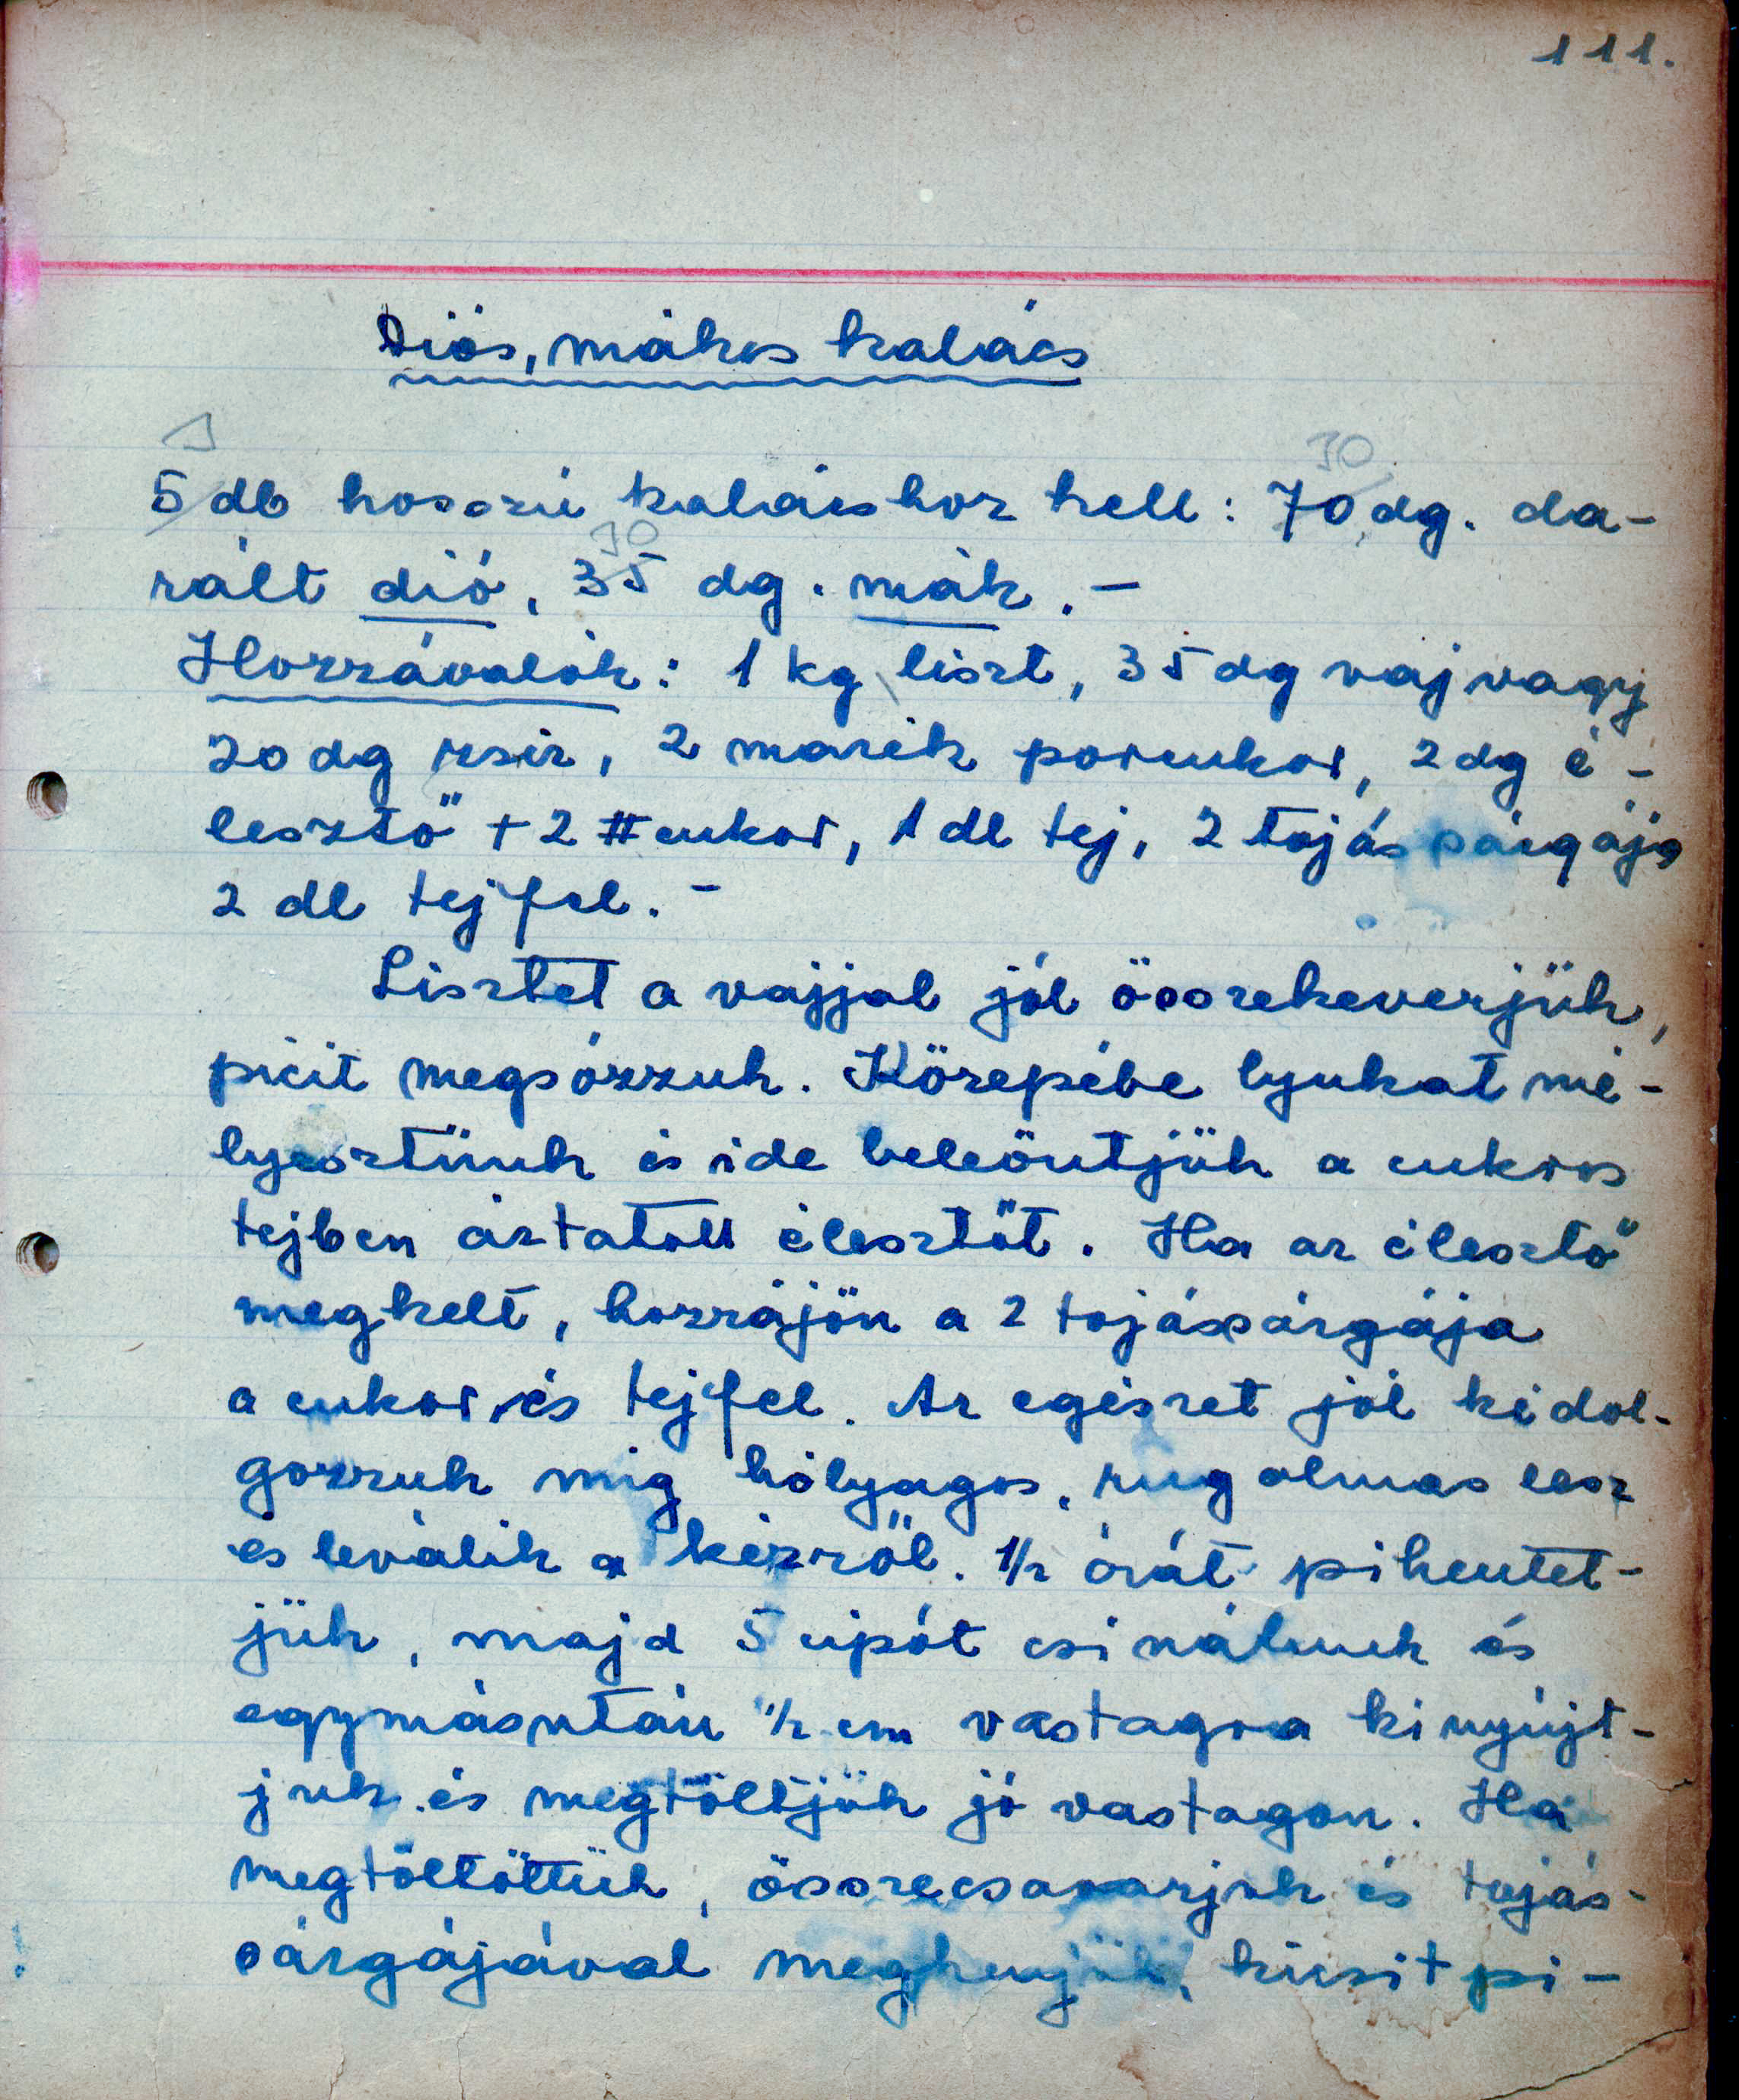 111.
Diós, mákos kalács
1 30
5 db hosszú kalácshoz kell: 70 dg. da-
30
rált dió, 35 dg. mák. -
Hozzávalók: 1 kg liszt, 35 dg vaj vagy
20 dg zsír, 2 marék porcukor, 2 dg é-
lesztő + 2 # cukor, 1 dl tej, 2 tojás sárgája
2 dl tejfel. -
Lisztet a vajjal jól összekeverjük,
picit megsózzuk. Közepébe lyukat mé-
lyesztünk és ide beleöntjük a cukros
tejben áztatott élesztőt. Ha az élesztő
megkelt, hozzájön a 2 tojássárgája
a cukor és tejfel. Az egészet jól kidol-
gozzuk míg hólyagos, rugalmas lesz
és leválik a kézről. 1/2 órát pihentet-
jük, majd 5 cipót csinálunk és
egymásután 1/2 cm vastagra kinyújt-
juk és megtöltjük jó vastagon. Ha
megtöltöttük, összecsavarjuk és tojás-
sárgájával megkenjük, kicsit pi-